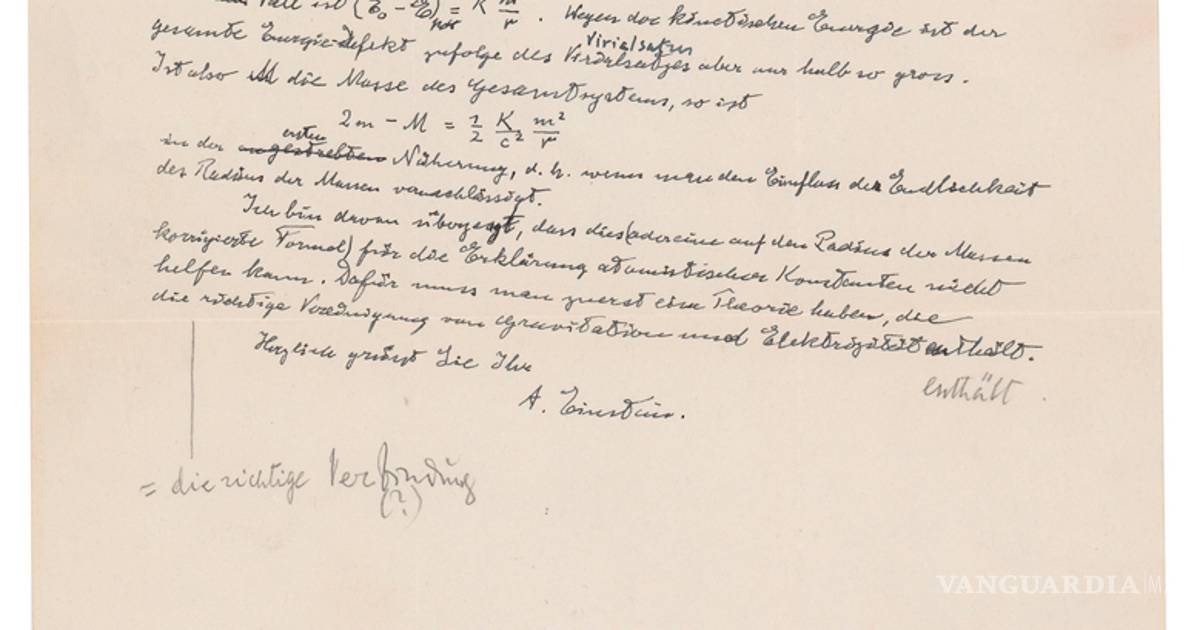 Fall ist (E₀ - E) = K m/r . Wegen der kinetischen Energie ist der
gesamte Energie-Defekt zufolge des Virialsatzes aber nur halb so gross.
Virialsatzes
Ist also M die Masse des Gesamtsystems, so ist
2m - M = 1/2 K/c² m²/r
ersten
in der angestrebten Näherung, d. h. wenn man den Einfluss der Endlichkeit
des Radius der Massen vernachlässigt.
Ich bin davon überzeugt, dass dies (oder eine auf den Radius der Massen
korrigierte Formel) für die Erklärung atomistischer Konstanten nicht
helfen kann. Dafür muss man zuerst eine Theorie haben, die
die richtige Vereinigung von Gravitation und Elektrizität enthält.
enthält
Herzlich grüsst Sie Ihr
A. Einstein.
= die richtige Verbindung
(?)
VANGUARDIA